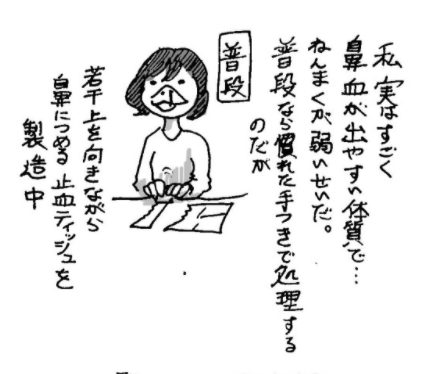 私 実はすごく
鼻血が出やすい体質で…
ねんまくが弱いせいだ。
普段なら慣れた手つきで処理する
のだが
普段
若干上を向きながら
鼻につめる止血ティッシュを
製造中